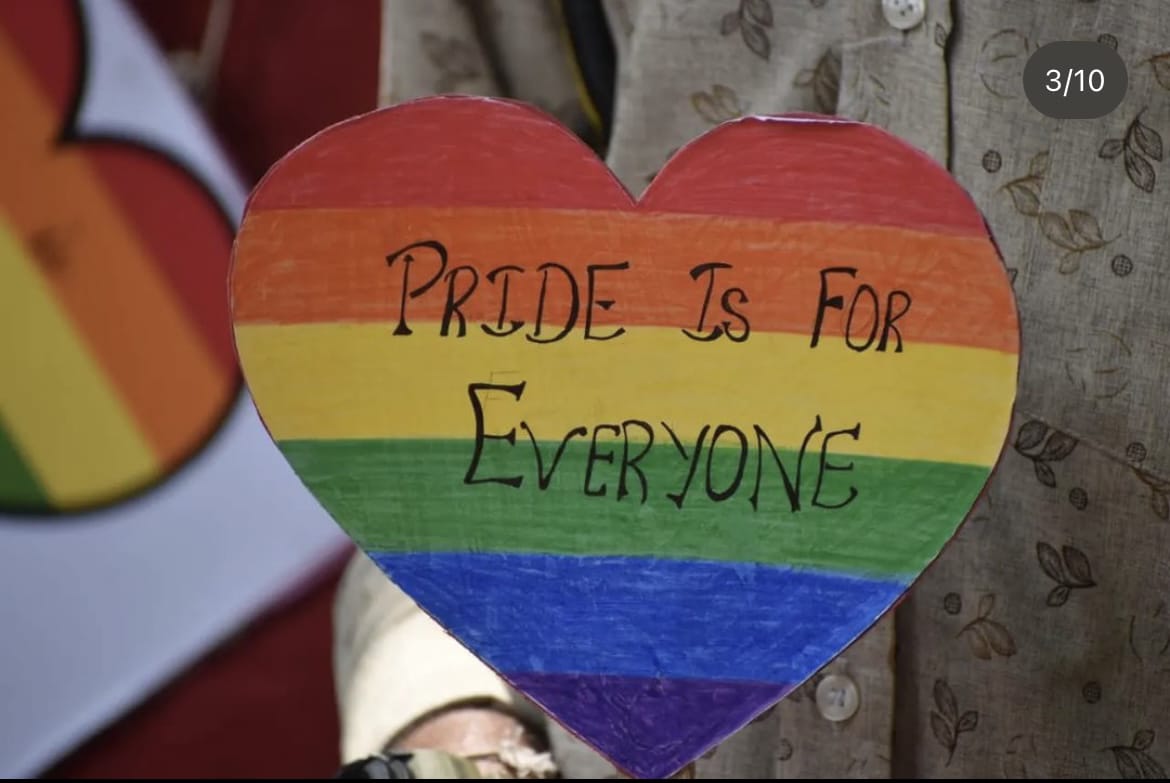 3/10
Pride Is For
Everyone